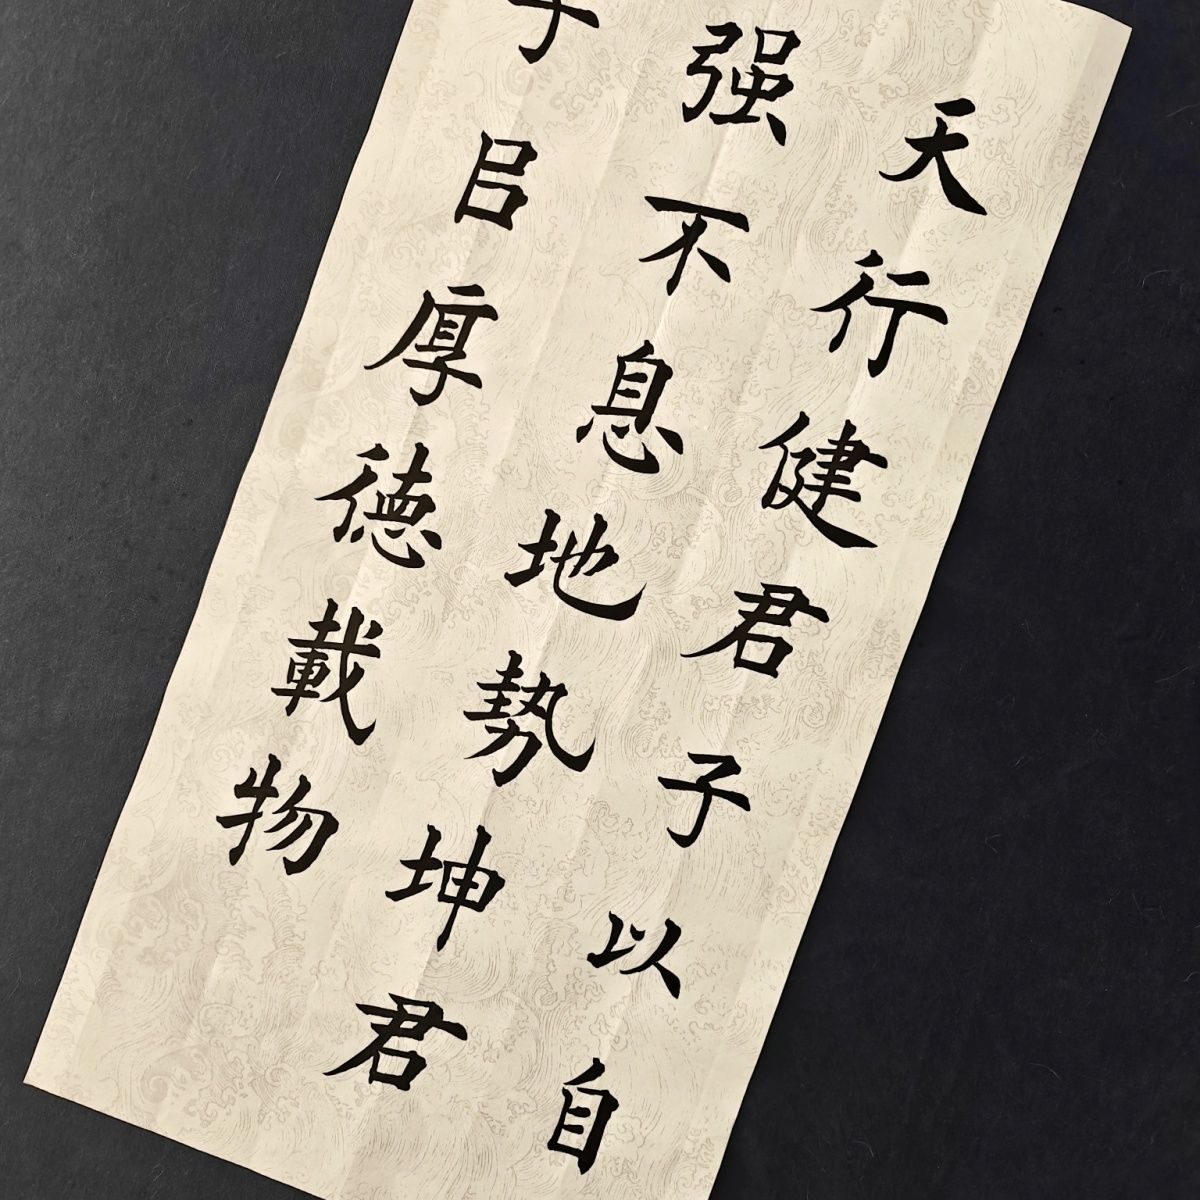 天行健君子以自
强不息地勢坤君
子㠯厚徳載物